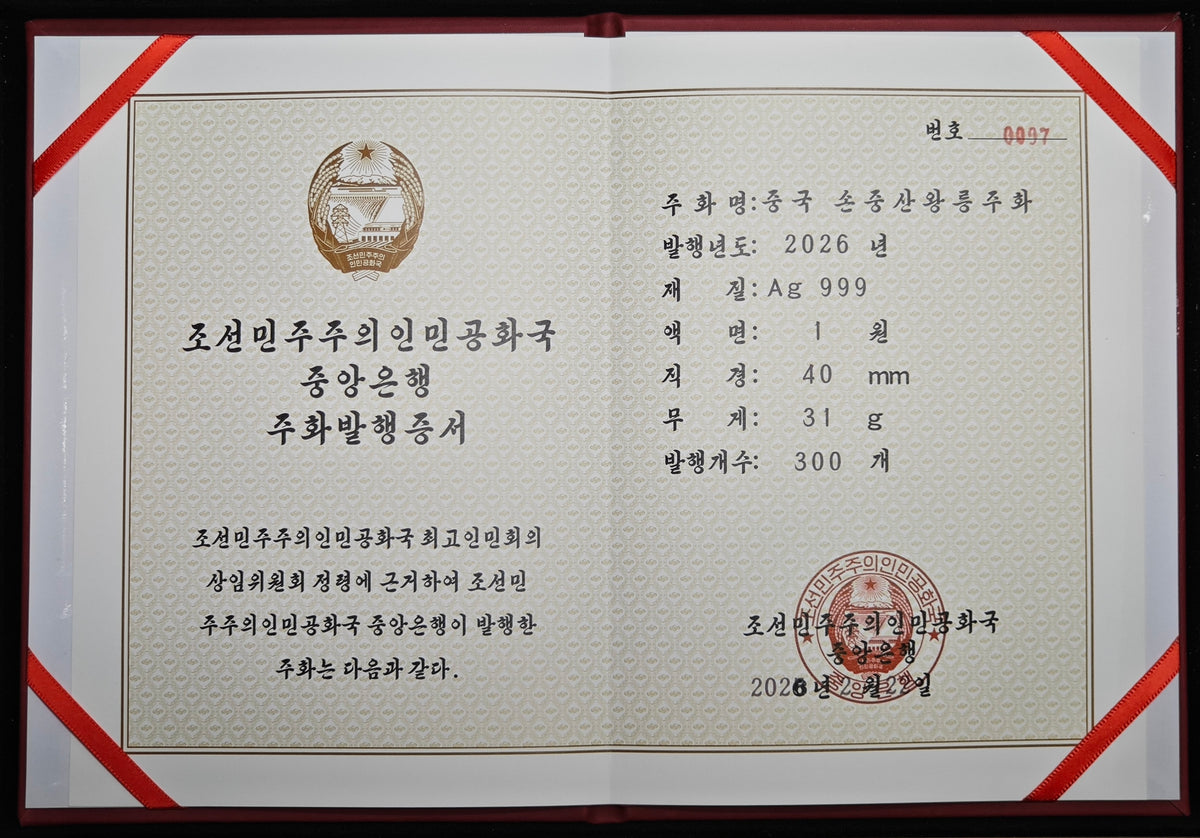 조선민주주의
인민공화국
조선민주주의인민공화국
중앙은행
주화발행증서
조선민주주의인민공화국 최고인민회의
상임위원회 정령에 근거하여 조선민
주주의인민공화국 중앙은행이 발행한
주화는 다음과 같다.
번호 0097
주화명:중국 손중산왕릉주화
발행년도: 2026 년
재 질:Ag 999
액 면: 1 원
직 경: 40 mm
무 게: 31 g
발행개수: 300 개
조선민주주의인민공화국
중앙은행
조선민주주의인민공화국
중앙은행
2026년 2월 22일